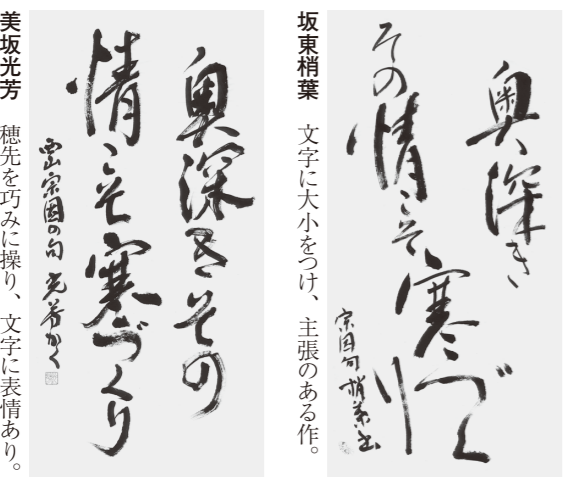 奥深き
その情こそ寒
づくり
宗因句 梢葉書
坂東梢葉 文字に大小をつけ、主張のある作。
奥深きその
情こそ寒づくり
西山宗因の句 光芳かく
美坂光芳 穂先を巧みに操り、文字に表情あり。